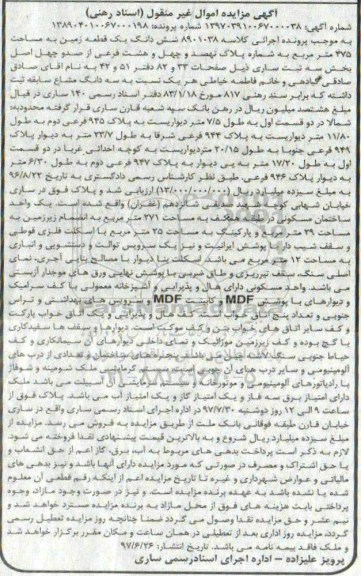 آگهی مزایده اموال غیر منقول (اسناد رهنی)
شماره آگهی: ۱۳۹۷۰۳۹۱۰۰۶۷۰۰۰۰۳۸ شماره پرونده: ۱۳۸۹۰۴۰۱۰۰۶۷۰۰۰۱۹۸
به موجب پرونده اجرائی کلاسه ۸۹۰۱۰۳۸ شش دانگ یک قطعه زمین به مساحت
۴۷۵ متر مربع به شماره پلاک نهصد و چهل و هشت فرعی از سه چهل اصل
بخش سه ثبت ساری ذیل صفحات ۳۳ و ۸۲ دفتر ۵۱ و ۴۲ به نام آقای صادق
صادقی گیادهمی و خانم فاطمه خیاطی هر یک نسبت به سه دانگ مشاع سابقه ثبت
داشته که برابر سند رهنی ۸۱۷ مورخ ۸۳/۱/۱۸ دفتر اسناد رسمی ۱۴۰ ساری در قبال
مبلغ هشتصد میلیون ریال در رهن بانک سپه شعبه قارن ساری قرار گرفته محدود به:
شمالا در دو قسمت اول به طول ۷/۵ متر دیواریست به پلاک ۹۴۵ فرعی دوم به طول
۱۱/۸۰ متر دیواریست به پلاک ۹۴۴ فرعی شرقا به طول ۲۳/۷ متر به دیوار پلاک
۹۴۹ فرعی جنوبا به طول ۲۰/۱۵ متر دیواریست به کوچه احداثی غربا در دو قسمت
اول به طول ۱۷/۳۰ متر به پی دیوار به پلاک ۹۴۷ فرعی دوم به طول ۶/۳۰ متر
به دیوار پلاک ۹۴۶ فرعی. طبق نظر کارشناس رسمی دادگستری به تاریخ ۹۶/۸/۲۲
به مبلغ سیزده میلیارد ریال (۱۳/۰۰۰/۰۰۰/۰۰۰) ارزیابی شد و پلاک فوق در ساری
خیابان شهابی کوچه شهید صدیقی سیزدهم (غفران) واقع شده است. یک واحد
ساختمان مسکونی در طبقه همکف به مساحت ۲۷۱ متر مربع به انضمام زیرزمین به
مساحت ۳۹ متر مربع و پارکینگ به مساحت ۲۵ متر مربع با اسکلت فلزی قوطی
و سقف شیب دار با پوشش ایرانیت و نیز یک سرویس توالت و دستشویی و انباری
به مساحت ۱۲ متر مربع می باشد. اسکلت بنا دیوار با مصالح بنایی آجری، نمای
اصلی سنگ، سقف تیرریزی و طاق ضربی با پوشش نهایی ورق های موجدار ازبستی
می باشد. واحد مسکونی دارای هال و پذیرایی و آشپزخانه معمولی با کف سرامیک
و دیوارهای با پوشش MDF و کابینت MDF و سرویس های بهداشتی و تراس
جنوبی و تعداد پنج اتاق خواب است. کف هال و پذیرایی و یک اتاق خواب پارکت
و کف سایر اتاق های خواب بتن و کف موکت است. دیوارها و سقف ها سفیدکاری
با گچ بوده و کف زیرزمین موزائیک و نمای داخلی دیوارهای آن سیمانکاری و کف
حیاط جنوبی سنگ پلاک می باشد. پنجره های ساختمان و تعدادی از درب های
آلومینیومی و سایر درب های آن چوبی است. سیستم گرمایشی ملک شوفینه و شوفاژ
با رادیاتورهای آلومینیومی و موتورخانه و سیستم سرمایشی آن اسپیلت می باشد ملک
دارای امتیاز برق سه فاز و یک امتیاز گاز و یک امتیاز آب می باشد. پلاک فوق از
ساعت ۹ الی ۱۲ روز دوشنبه ۹۷/۷/۳۰ در اداره اجرای اسناد رسمی ساری واقع در ساری
خیابان قارن طبقه فوقانی بانک ملت از طریق مزایده به فروش می رسد. مزایده از
مبلغ سیزده میلیارد ریال شروع و به بالاترین قیمت پیشنهادی نقدا فروخته می شود.
لازم به ذکر است پرداخت بدهی های مربوط به آب، برق، گاز اعم از حق انشعاب و
یا حق اشتراک و مصرف در صورتی که مورد مزایده دارای آنها باشد و نیز بدهی های
مالیاتی و عوارض شهرداری و غیره تا تاریخ مزایده اعم از اینکه رقم قطعی آن معلوم
شده یا نشده باشد به عهده برنده مزایده است. و نیز در صورت وجود مازاد، وجوه
پرداختی بابت هزینه های فوق از محل مازاد به برنده مزایده مسترد خواهد شد و
نیم عشر و حق مزایده نقدا وصول می گردد ضمنا چنانچه روز مزایده تعطیل رسمی
گردد، مزایده روز اداری بعد از تعطیلی در همان ساعت و مکان مقرر برگزار خواهد شد
و ملک فاقد بیمه نامه می باشد. تاریخ انتشار: ۹۷/۶/۲۶
پرویز علیزاده - اداره اجرای اسناد رسمی ساری